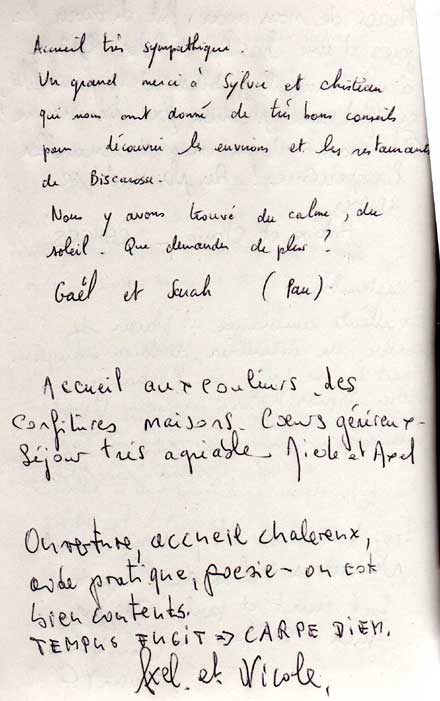 Accueil très sympathique.
Un grand merci à Sylvie et christian
qui nous ont donné de très bons conseils
pour découvrir les environs et les restaurants
de Biscarosse.
Nous y avons trouvé du calme, du
soleil. Que demander de plus ?
Gaël et Sarah (Pau).
Accueil aux couleurs des
confitures maisons. Coeurs généreux -
Séjour très agréable. Nicole et Axel
Ouverture, accueil chalereux,
aide pratique, poesie - on est
bien contents.
TEMPUS FUGIT => CARPE DIEM.
Axel et Nicole.